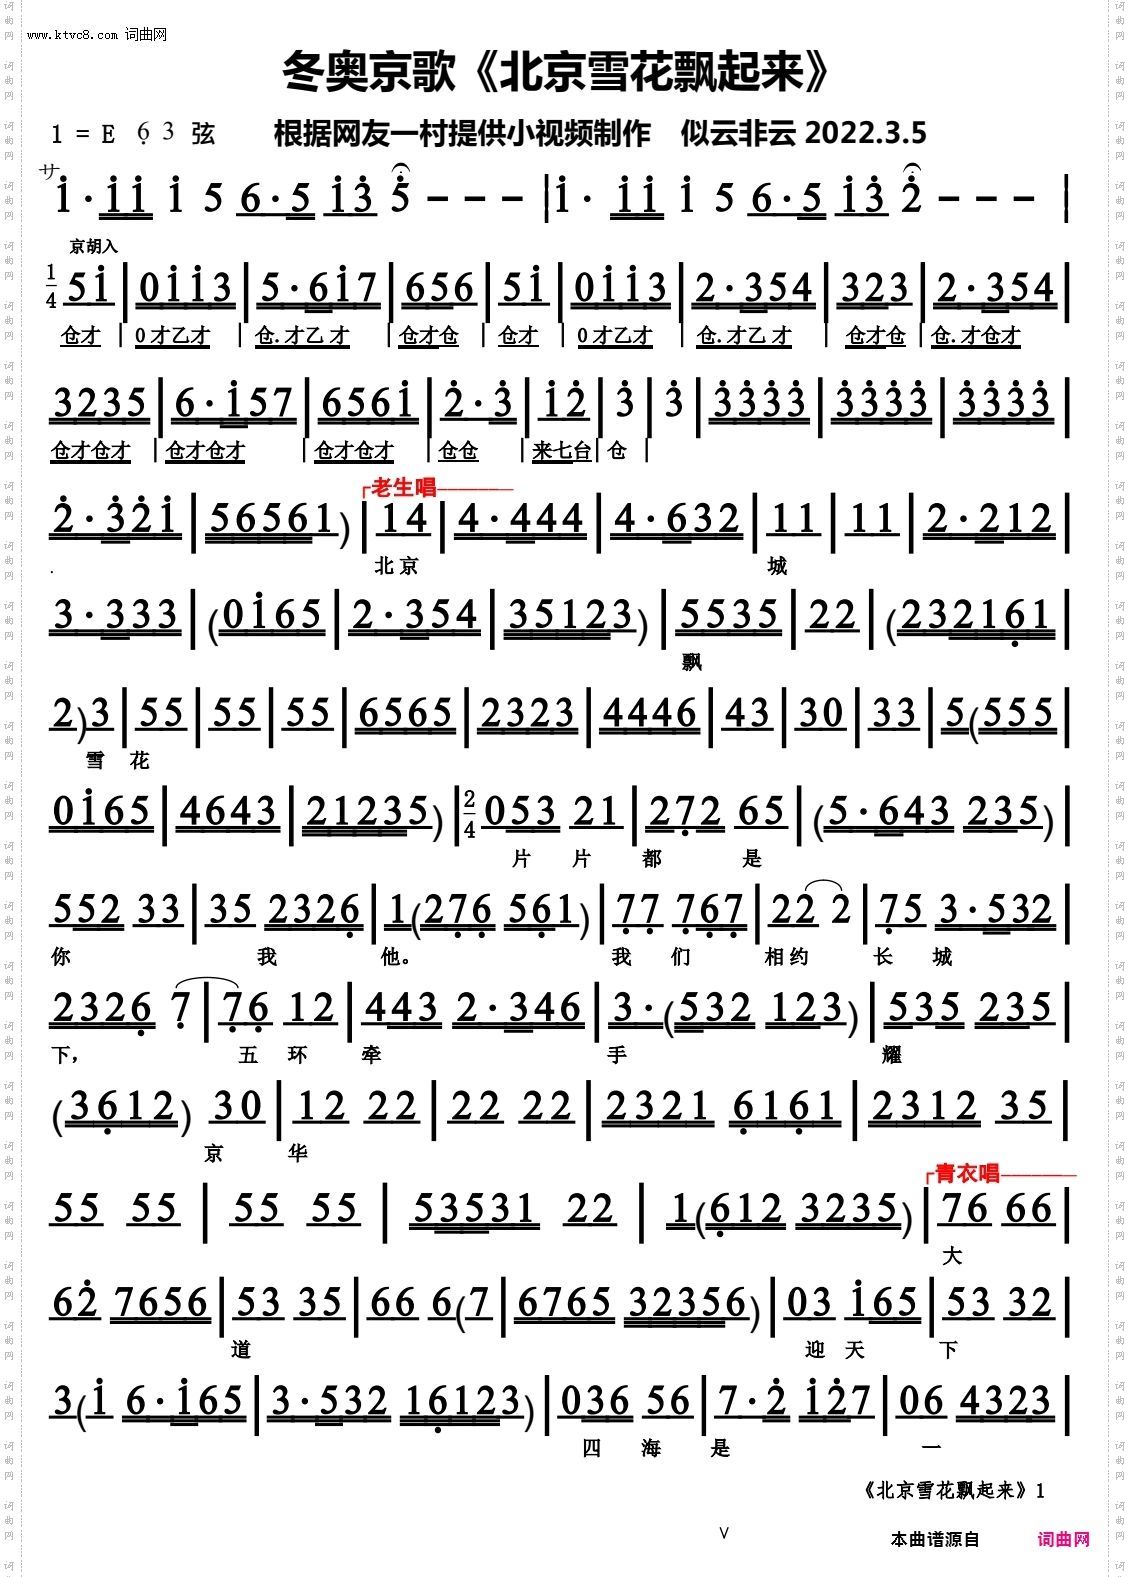 www.ktvc8.com 词曲网
冬奥京歌《北京雪花飘起来》
1 = E 6̣ 3 弦 根据网友一村提供小视频制作 似云非云 2022.3.5
サ
1̇·1̇1̇ 1̇ 5 6·5 1̇3̇ 5̇ - - - | 1̇·1̇1̇ 1̇ 5 6·5 1̇3̇ 2̇ - - - |
京胡入
1/4 51̇ | 01̇1̇3 | 5·61̇7 | 656 | 51̇ | 01̇1̇3 | 2·354 | 323 | 2·354 |
仓才 | 0才乙才 | 仓.才乙才 | 仓才仓 | 仓才 | 0才乙才 | 仓.才乙才 | 仓才仓 | 仓.才仓才
3235 | 6·1̇57 | 6561̇ | 2̇·3̇ | 1̇2̇ | 3̇ | 3̇ | 3̇3̇3̇3̇ | 3̇3̇3̇3̇ | 3̇3̇3̇3̇ |
仓才仓才 | 仓才仓才 | 仓才仓才 | 仓仓 | 来七台 | 仓 |
┌老生唱———
2̇·3̇2̇1̇ | 56561) | 14 | 4·444 | 4·632 | 11 | 11 | 2·212 |
. 北京 城
3·333 | (01̇65 | 2·354 | 35123) | 5535 | 22 | (23216̣1 |
飘
2)3 | 55 | 55 | 55 | 6565 | 2323 | 4446 | 43 | 30 | 33 | 5(555 |
雪 花
01̇65 | 4643 | 21235) | 2/4 053 21 | 27̣2 65 | (5·643 235) |
片 片 都 是
552 33 | 35 2326̣ | 1(27̣6̣ 56̣1) | 7̣7̣ 7̣6̣7̣ | 22 2 | 7̣5 3·532 |
你 我 他。 我 们 相约 长 城
2326̣ 7̣ | 7̣6̣ 12 | 443 2·346 | 3·(532 123) | 535 235 |
下， 五 环 牵 手 耀
(36̣12) 30 | 12 22 | 22 22 | 2321 6̣16̣1 | 2312 35 |
京 华
┌青衣唱———
55 55 | 55 55 | 53531 22 | 1(6̣12 3235) | 76 66 |
大
62̇ 7656 | 53 35 | 66 6(7 | 6765 32356) | 03 1̇65 | 53 32 |
道 迎 天 下
3(1̇ 6·1̇65 | 3·532 16̣123) | 036 56 | 7·2̇ 1̇2̇7 | 06 4323 |
四 海 是 一
《北京雪花飘起来》1
V
本曲谱源自 词曲网